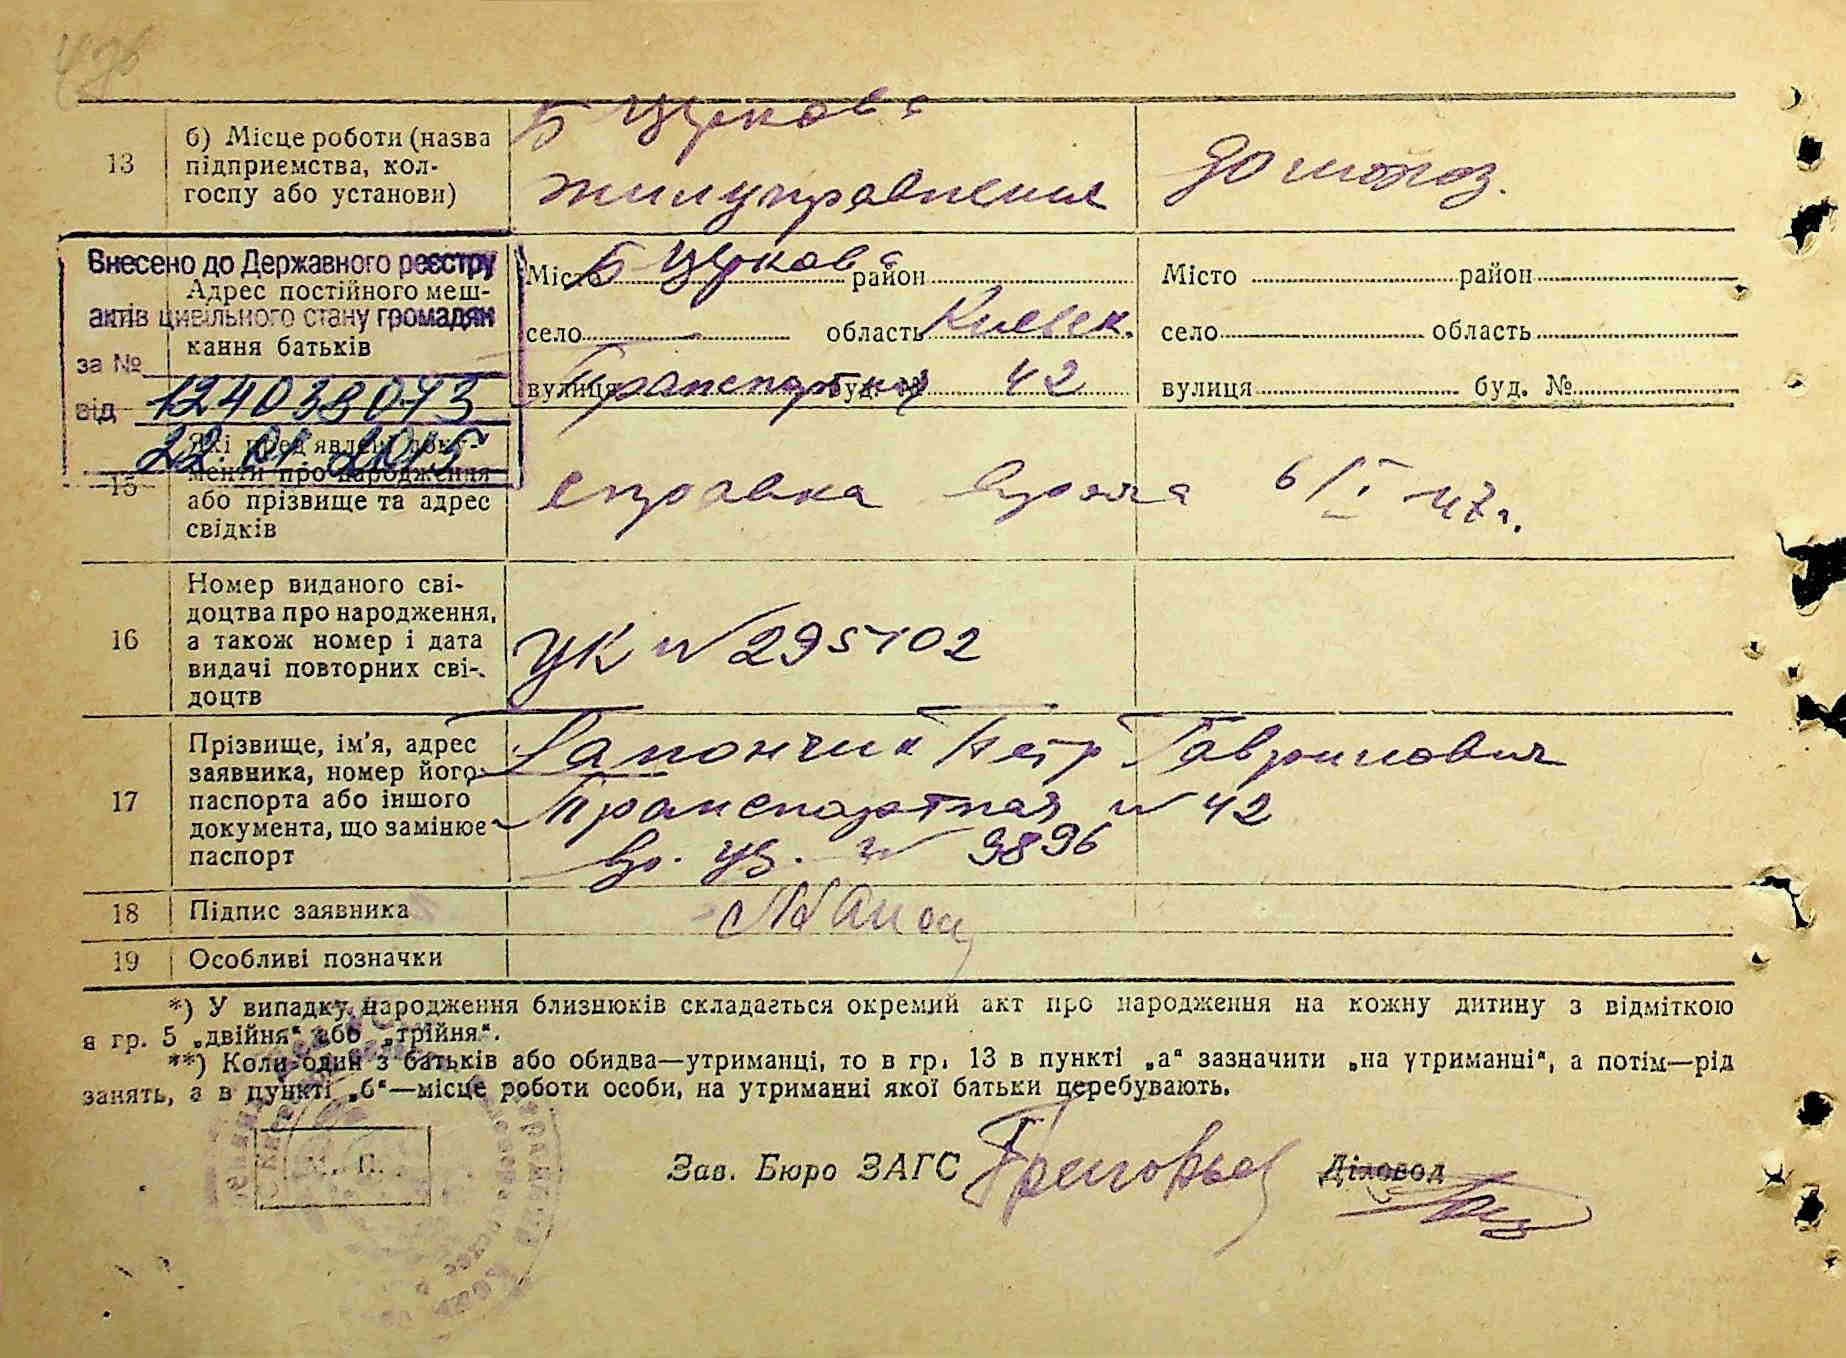 13
б) Місце роботи (назва
підприємства, кол-
госпу або установи)
Б Церковь
жилуправления
домохоз.
Внесено до Державного реєстру
актів цивільного стану громадян
за № 124038073
від 22.01.2015
Адрес постійного меш-
кання батьків
Місто Б Церковь район
село — область Киевск.
вулиця Транспортная буд. № 42
Місто район
село область
вулиця буд. №
15
Які пред'явлені доку-
менти про народження
або прізвище та адрес
свідків
справка врача 6/I 47 г.
16
Номер виданого сві-
доцтва про народження,
а також номер і дата
видачі повторних сві-
доцтв
УК № 295102
17
Прізвище, ім'я, адрес
заявника, номер його
паспорта або іншого
документа, що замінює
паспорт
Гапончик Петр Гаврилович
Транспортная № 42
вр. уд. № 9896
18
Підпис заявника
19
Особливі позначки
*) У випадку народження близнюків складається окремий акт про народження на кожну дитину з відміткою
в гр. 5 „двійня“ або „трійня“.
**) Коли один з батьків або обидва—утриманці, то в гр. 13 в пункті „а“ зазначити „на утриманні“, а потім—рід
занять, а в пункті „б“—місце роботи особи, на утриманні якої батьки перебувають.
М. П.
Зав. Бюро ЗАГС
Діловод